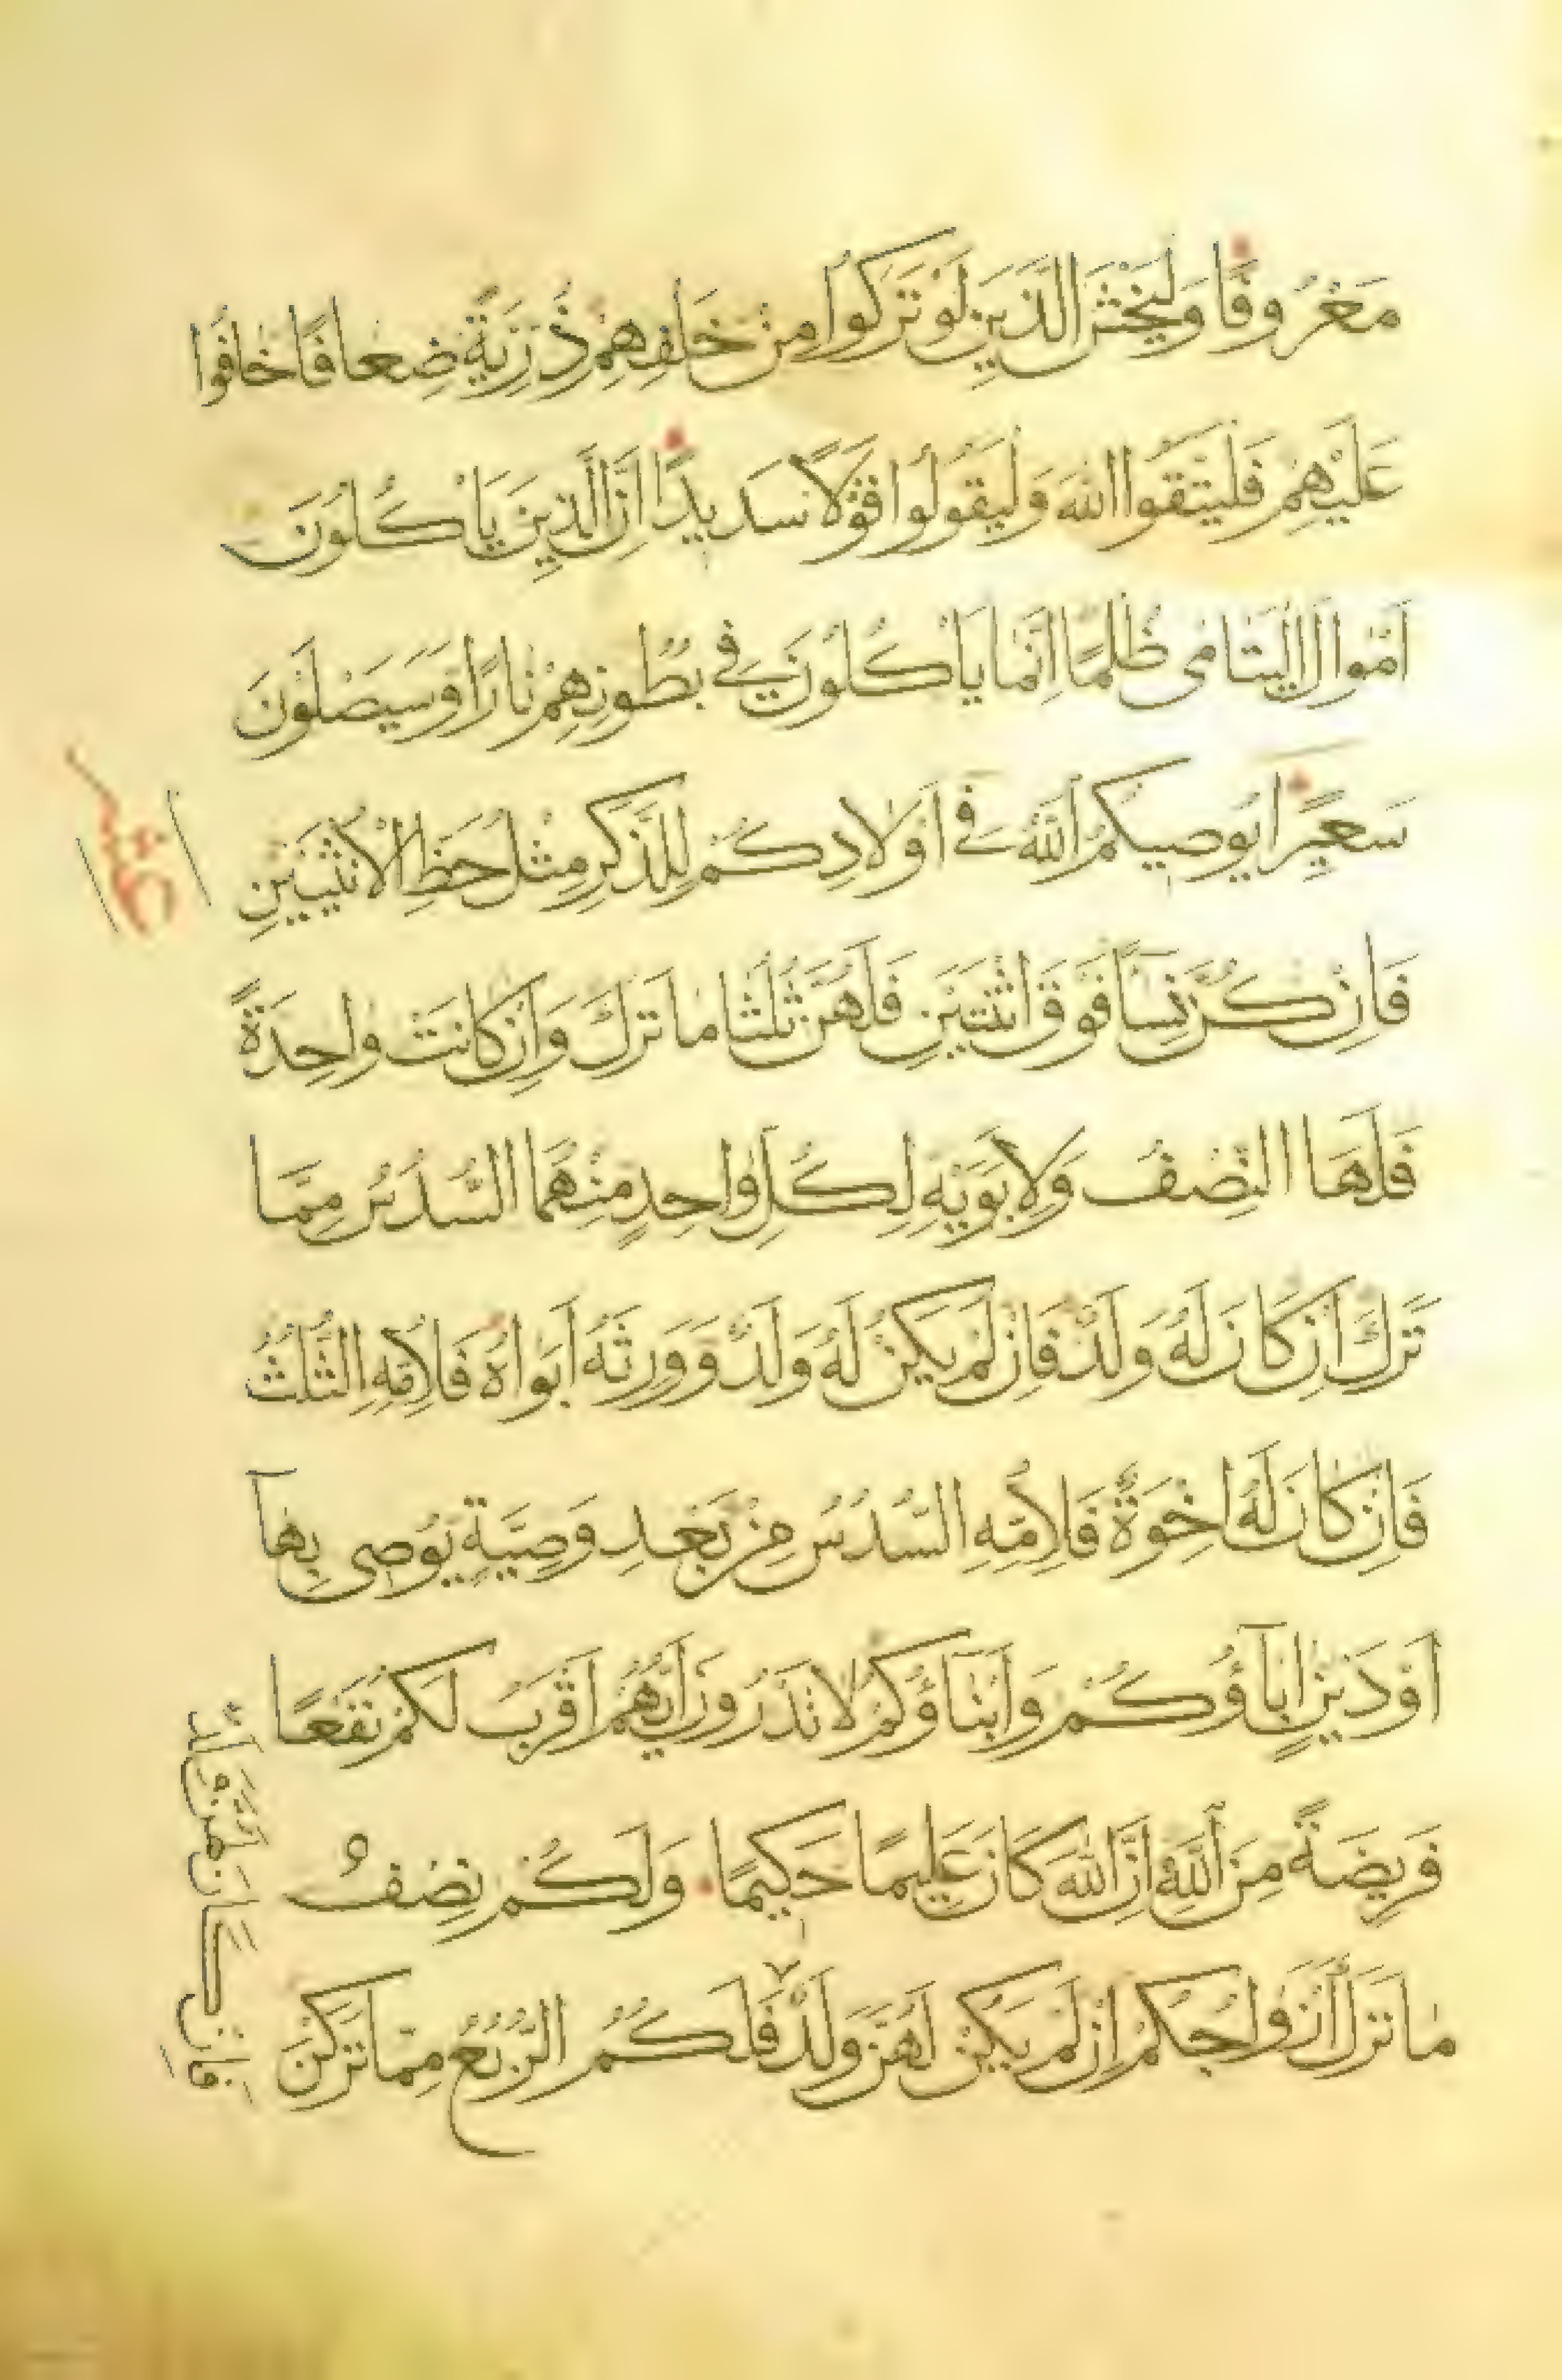 مَعْرُوفًا وَلْيَخْشَ الَّذِينَ لَوْ تَرَكُوا مِنْ خَلْفِهِمْ ذُرِّيَّةً ضِعَافًا خَافُوا
عَلَيْهِمْ فَلْيَتَّقُوا اللَّهَ وَلْيَقُولُوا قَوْلًا سَدِيدًا اِنَّ الَّذِينَ يَاْكُلُونَ
اَمْوَالَ الْيَتَامَى ظُلْمًا اِنَّمَا يَاْكُلُونَ فِي بُطُونِهِمْ نَارًا وَسَيَصْلَوْنَ
سَعِيرًا يُوصِيكُمُ اللَّهُ فِي اَوْلَادِكُمْ لِلذَّكَرِ مِثْلُ حَظِّ الْاُنْثَيَيْنِ
فَاِنْ كُنَّ نِسَآءً فَوْقَ اثْنَتَيْنِ فَلَهُنَّ ثُلُثَا مَا تَرَكَ وَاِنْ كَانَتْ وَاحِدَةً
فَلَهَا النِّصْفُ وَلِاَبَوَيْهِ لِكُلِّ وَاحِدٍ مِنْهُمَا السُّدُسُ مِمَّا
تَرَكَ اِنْ كَانَ لَهُ وَلَدٌ فَاِنْ لَمْ يَكُنْ لَهُ وَلَدٌ وَوَرِثَهُ اَبَوَاهُ فَلِاُمِّهِ الثُّلُثُ
فَاِنْ كَانَ لَهُ اِخْوَةٌ فَلِاُمِّهِ السُّدُسُ مِنْ بَعْدِ وَصِيَّةٍ يُوصِي بِهَآ
اَوْ دَيْنٍ اٰبَآؤُكُمْ وَاَبْنَآؤُكُمْ لَا تَدْرُونَ اَيُّهُمْ اَقْرَبُ لَكُمْ نَفْعًا
فَرِيضَةً مِنَ اللَّهِ اِنَّ اللَّهَ كَانَ عَلِيمًا حَكِيمًا وَلَكُمْ نِصْفُ
مَا تَرَكَ اَزْوَاجُكُمْ اِنْ لَمْ يَكُنْ لَهُنَّ وَلَدٌ فَلَكُمُ الرُّبُعُ مِمَّا تَرَكْنَ
عشر
فَاِنْ كَانَ لَهُنَّ وَلَدٌ